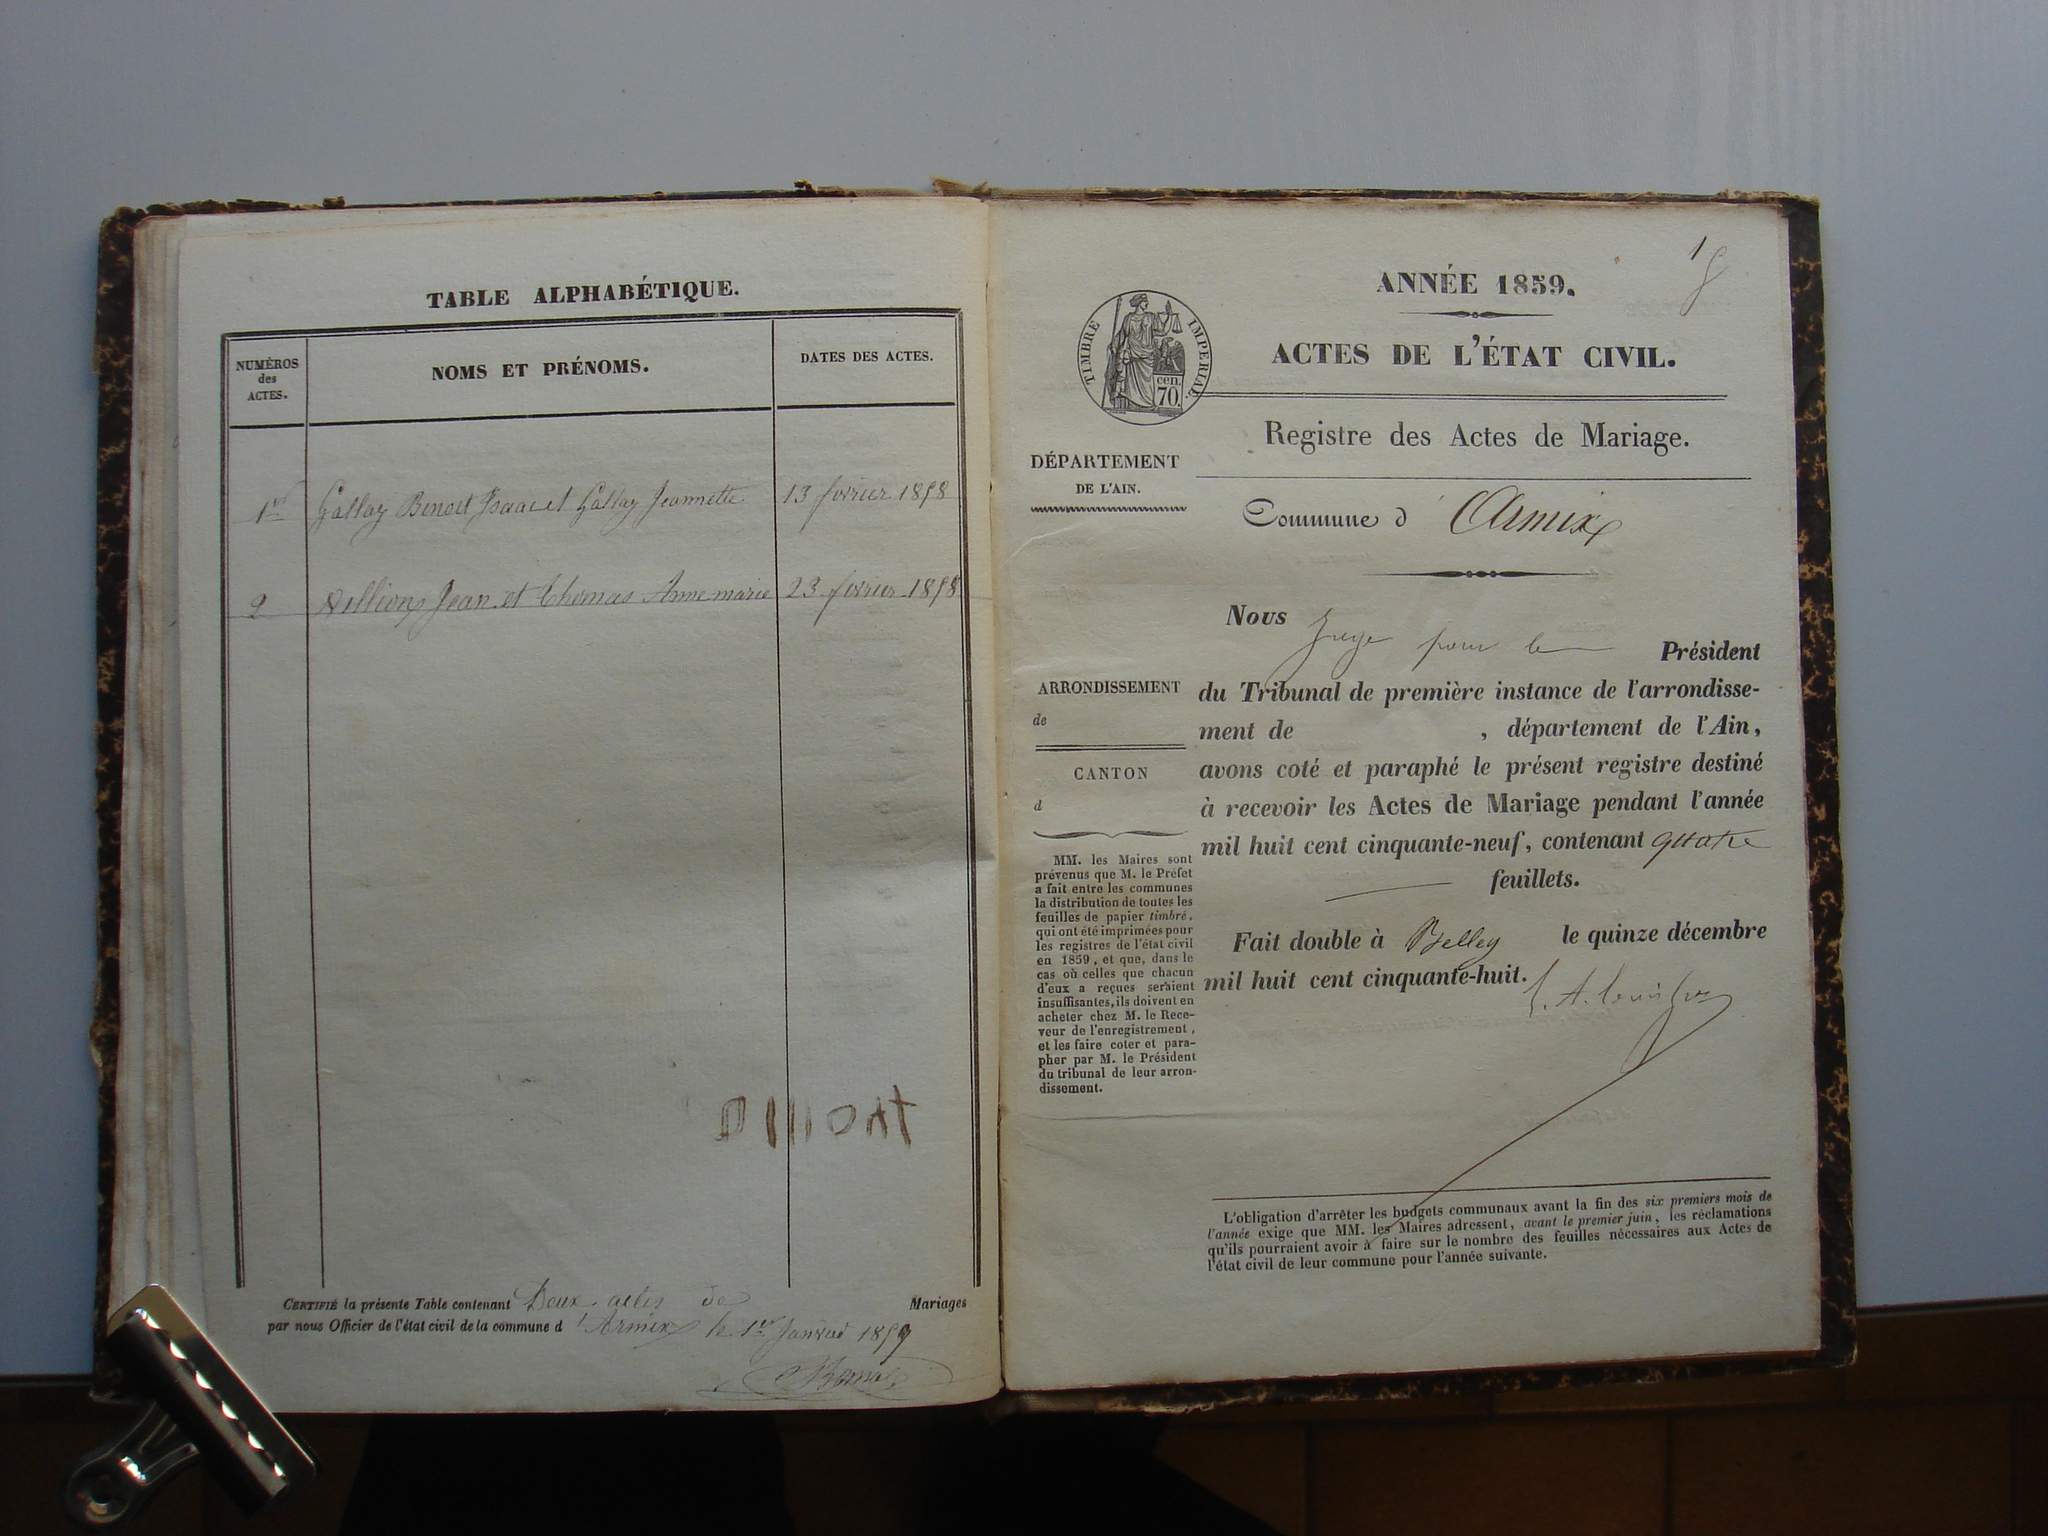 TABLE ALPHABÉTIQUE.
NUMÉROS
des
ACTES.
NOMS ET PRÉNOMS.
DATES DES ACTES.
1er Gallay Benoit Isaac et Gallay Jeannette 13 fevrier 1858
2 Jean et Thomas Anne marie 23 fevrier 1858
CERTIFIÉ la présente Table contenant Deux actes de Mariages
par nous Officier de l'état civil de la commune d'Armix le 1er Janvier 1859
1
ANNÉE 1859.
ACTES DE L'ÉTAT CIVIL.
TIMBRE IMPERIAL.
cen.
70.
Registre des Actes de Mariage.
DÉPARTEMENT
DE L'AIN.
Commune d'Armix
ARRONDISSEMENT
de
CANTON
d
MM. les Maires sont
prévenus que M. le Préfet
a fait entre les communes
la distribution de toutes les
feuilles de papier timbré,
qui ont été imprimées pour
les registres de l'état civil
en 1859, et que, dans le
cas où celles que chacun
d'eux a reçues seraient
insuffisantes, ils doivent en
acheter chez M. le Rece-
veur de l'enregistrement,
et les faire coter et para-
pher par M. le Président
du tribunal de leur arron-
dissement.
Nous Juge pour le Président
du Tribunal de première instance de l'arrondisse-
ment de , département de l'Ain,
avons coté et paraphé le présent registre destiné
à recevoir les Actes de Mariage pendant l'année
mil huit cent cinquante-neuf, contenant quatre
feuillets.
Fait double à Belley le quinze décembre
mil huit cent cinquante-huit.
L'obligation d'arrêter les budgets communaux avant la fin des six premiers mois de
l'année exige que MM. les Maires adressent, avant le premier juin, les réclamations
qu'ils pourraient avoir à faire sur le nombre des feuilles nécessaires aux Actes de
l'état civil de leur commune pour l'année suivante.